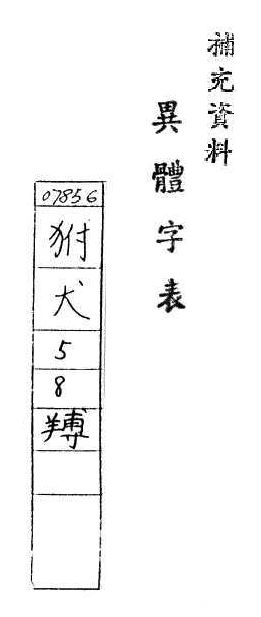 補充資料
異體字表
07856
犬
5
8
䍸